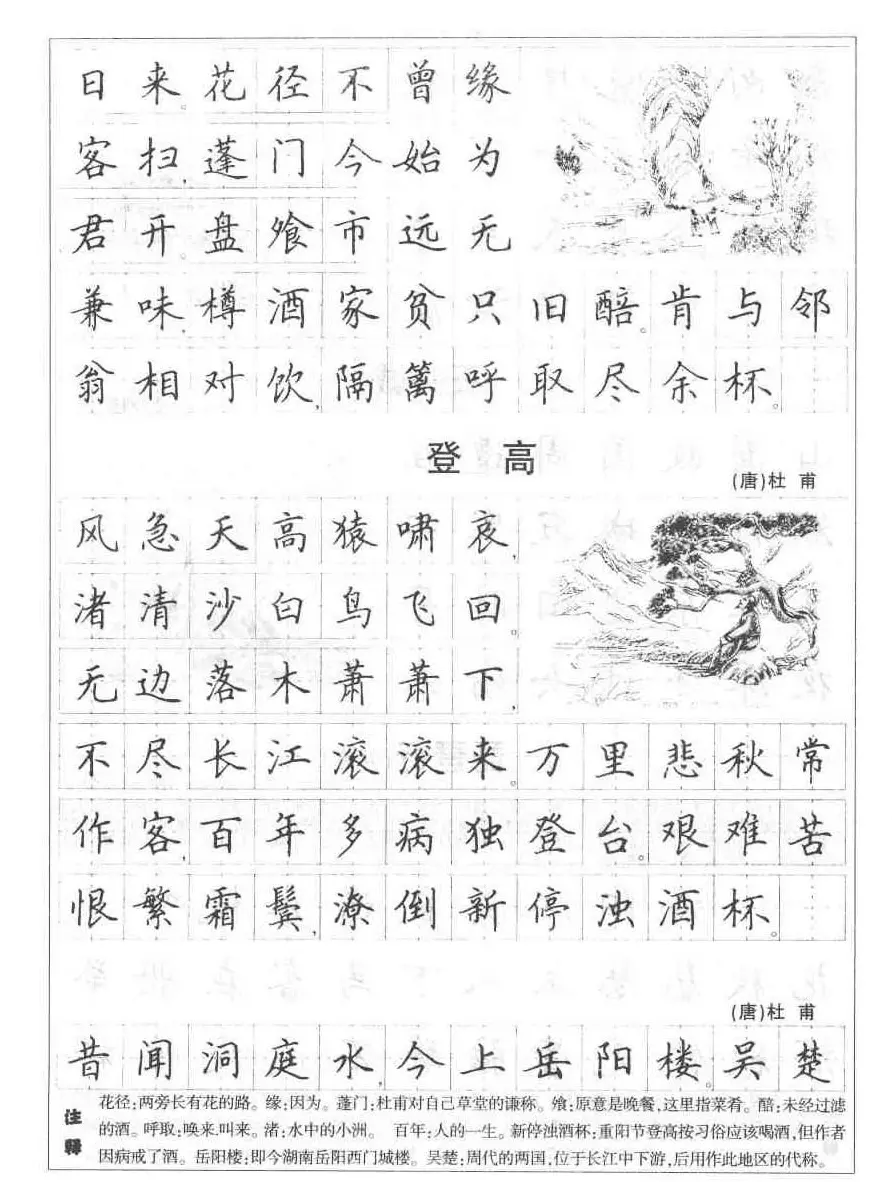 日来。花径不曾缘
客扫,蓬门今始为
君开。盘飧市远无
兼味,樽酒家贫只旧醅。肯与邻
翁相对饮,隔篱呼取尽余杯。
登高
(唐)杜甫
风急天高猿啸哀,
渚清沙白鸟飞回。
无边落木萧萧下,
不尽长江滚滚来。万里悲秋常
作客,百年多病独登台。艰难苦
恨繁霜鬓,潦倒新停浊酒杯。
(唐)杜甫
昔闻洞庭水,今上岳阳楼。吴楚
注释
花径:两旁长有花的路。缘:因为。蓬门:杜甫对自己草堂的谦称。飧:原意是晚餐,这里指菜肴。醅:未经过滤
的酒。呼取:唤来.叫来。渚:水中的小洲。 百年:人的一生。新停浊酒杯:重阳节登高按习俗应该喝酒,但作者
因病戒了酒。岳阳楼:即今湖南岳阳西门城楼。吴楚:周代的两国,位于长江中下游,后用作此地区的代称。